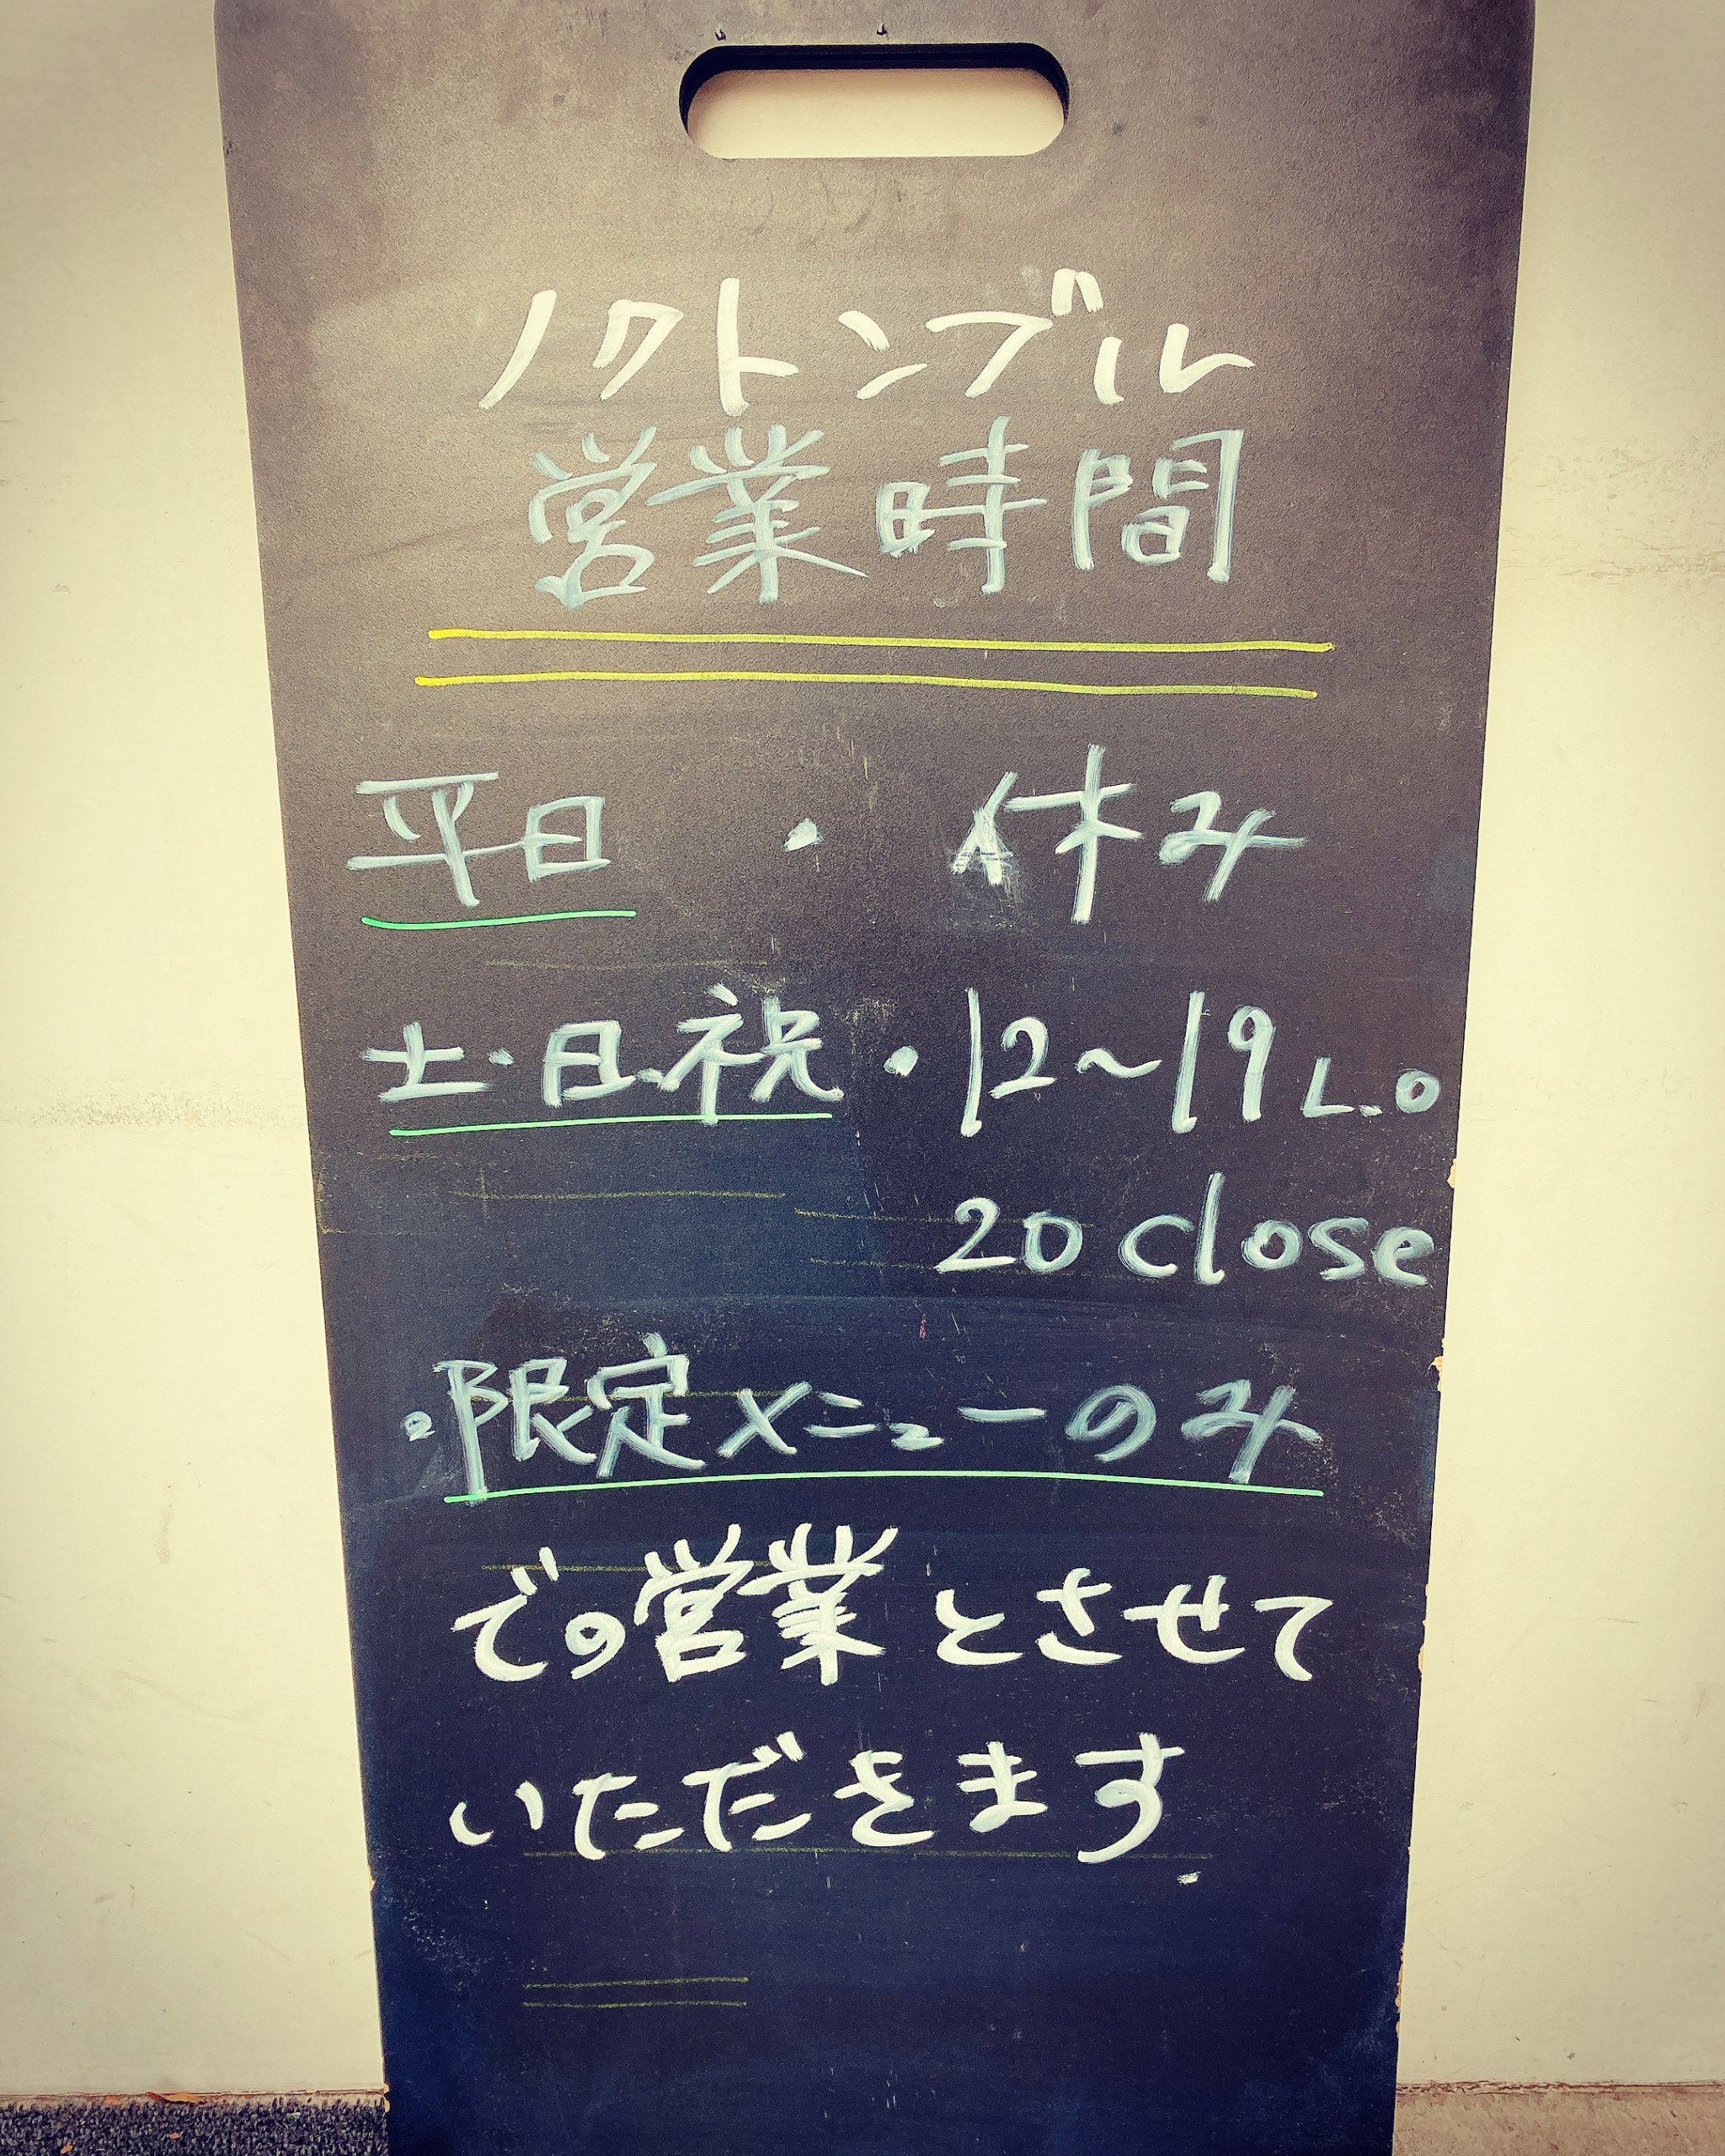 ノクトンブル
営業時間
平日 ・ 休み
土・日・祝・12～19 L.O
20 close
・限定メニューのみ
での営業とさせて
いただきます.